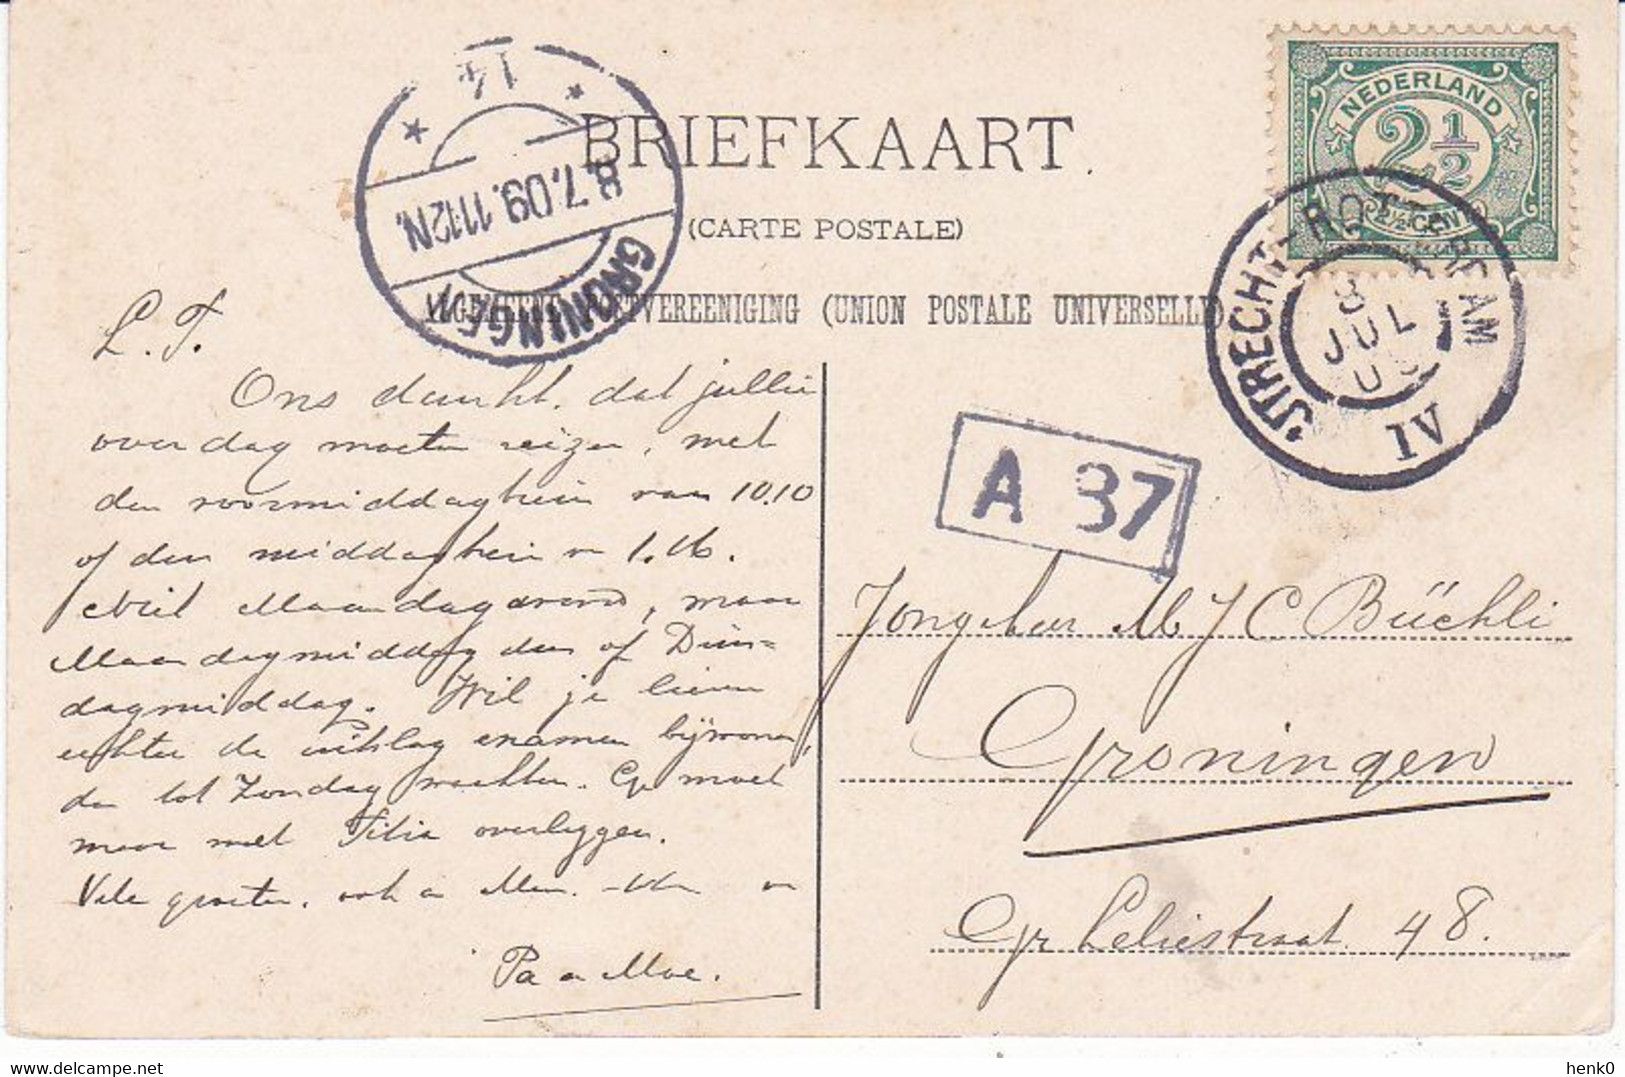 BRIEFKAART.
(CARTE POSTALE)
ALGEMEENE POSTVEREENIGING (UNION POSTALE UNIVERSELLE)
NEDERLAND
2 1/2
2½ CENT
UTRECHT-ROTTERDAM
8
JUL
IV
14
8.7.09.11-12N.
GRONINGEN
A 37
L. T.
Ons dunkt, dat jullie
overdag moeten reizen, met
den voormiddagtrein van 10.10
of den middagtrein v 1.16.
Maandagavond, maar
Maandagmiddag dan of Dins=
dagmiddag. Wil je liever
echter de uitslag examen bijwonen,
dan tot Zondag wachten. Ge moet
maar met Titia overleggen.
Vele groeten, ook v
Pa en Moe.
Jongeheer M J C Büchli
Groningen
Gr Leliestraat 48.
delcampe.net
henk0